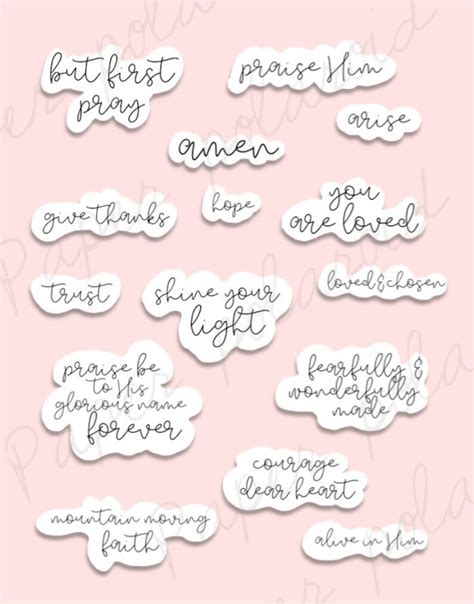 but first
pray
praise Him
arise
amen
hope
give thanks
you
are loved
trust
shine your
light
loved & chosen
praise be
to His
glorious name
forever
fearfully &
wonderfully
made
courage
dear heart
mountain moving
faith
alive in Him
Paper polaroid